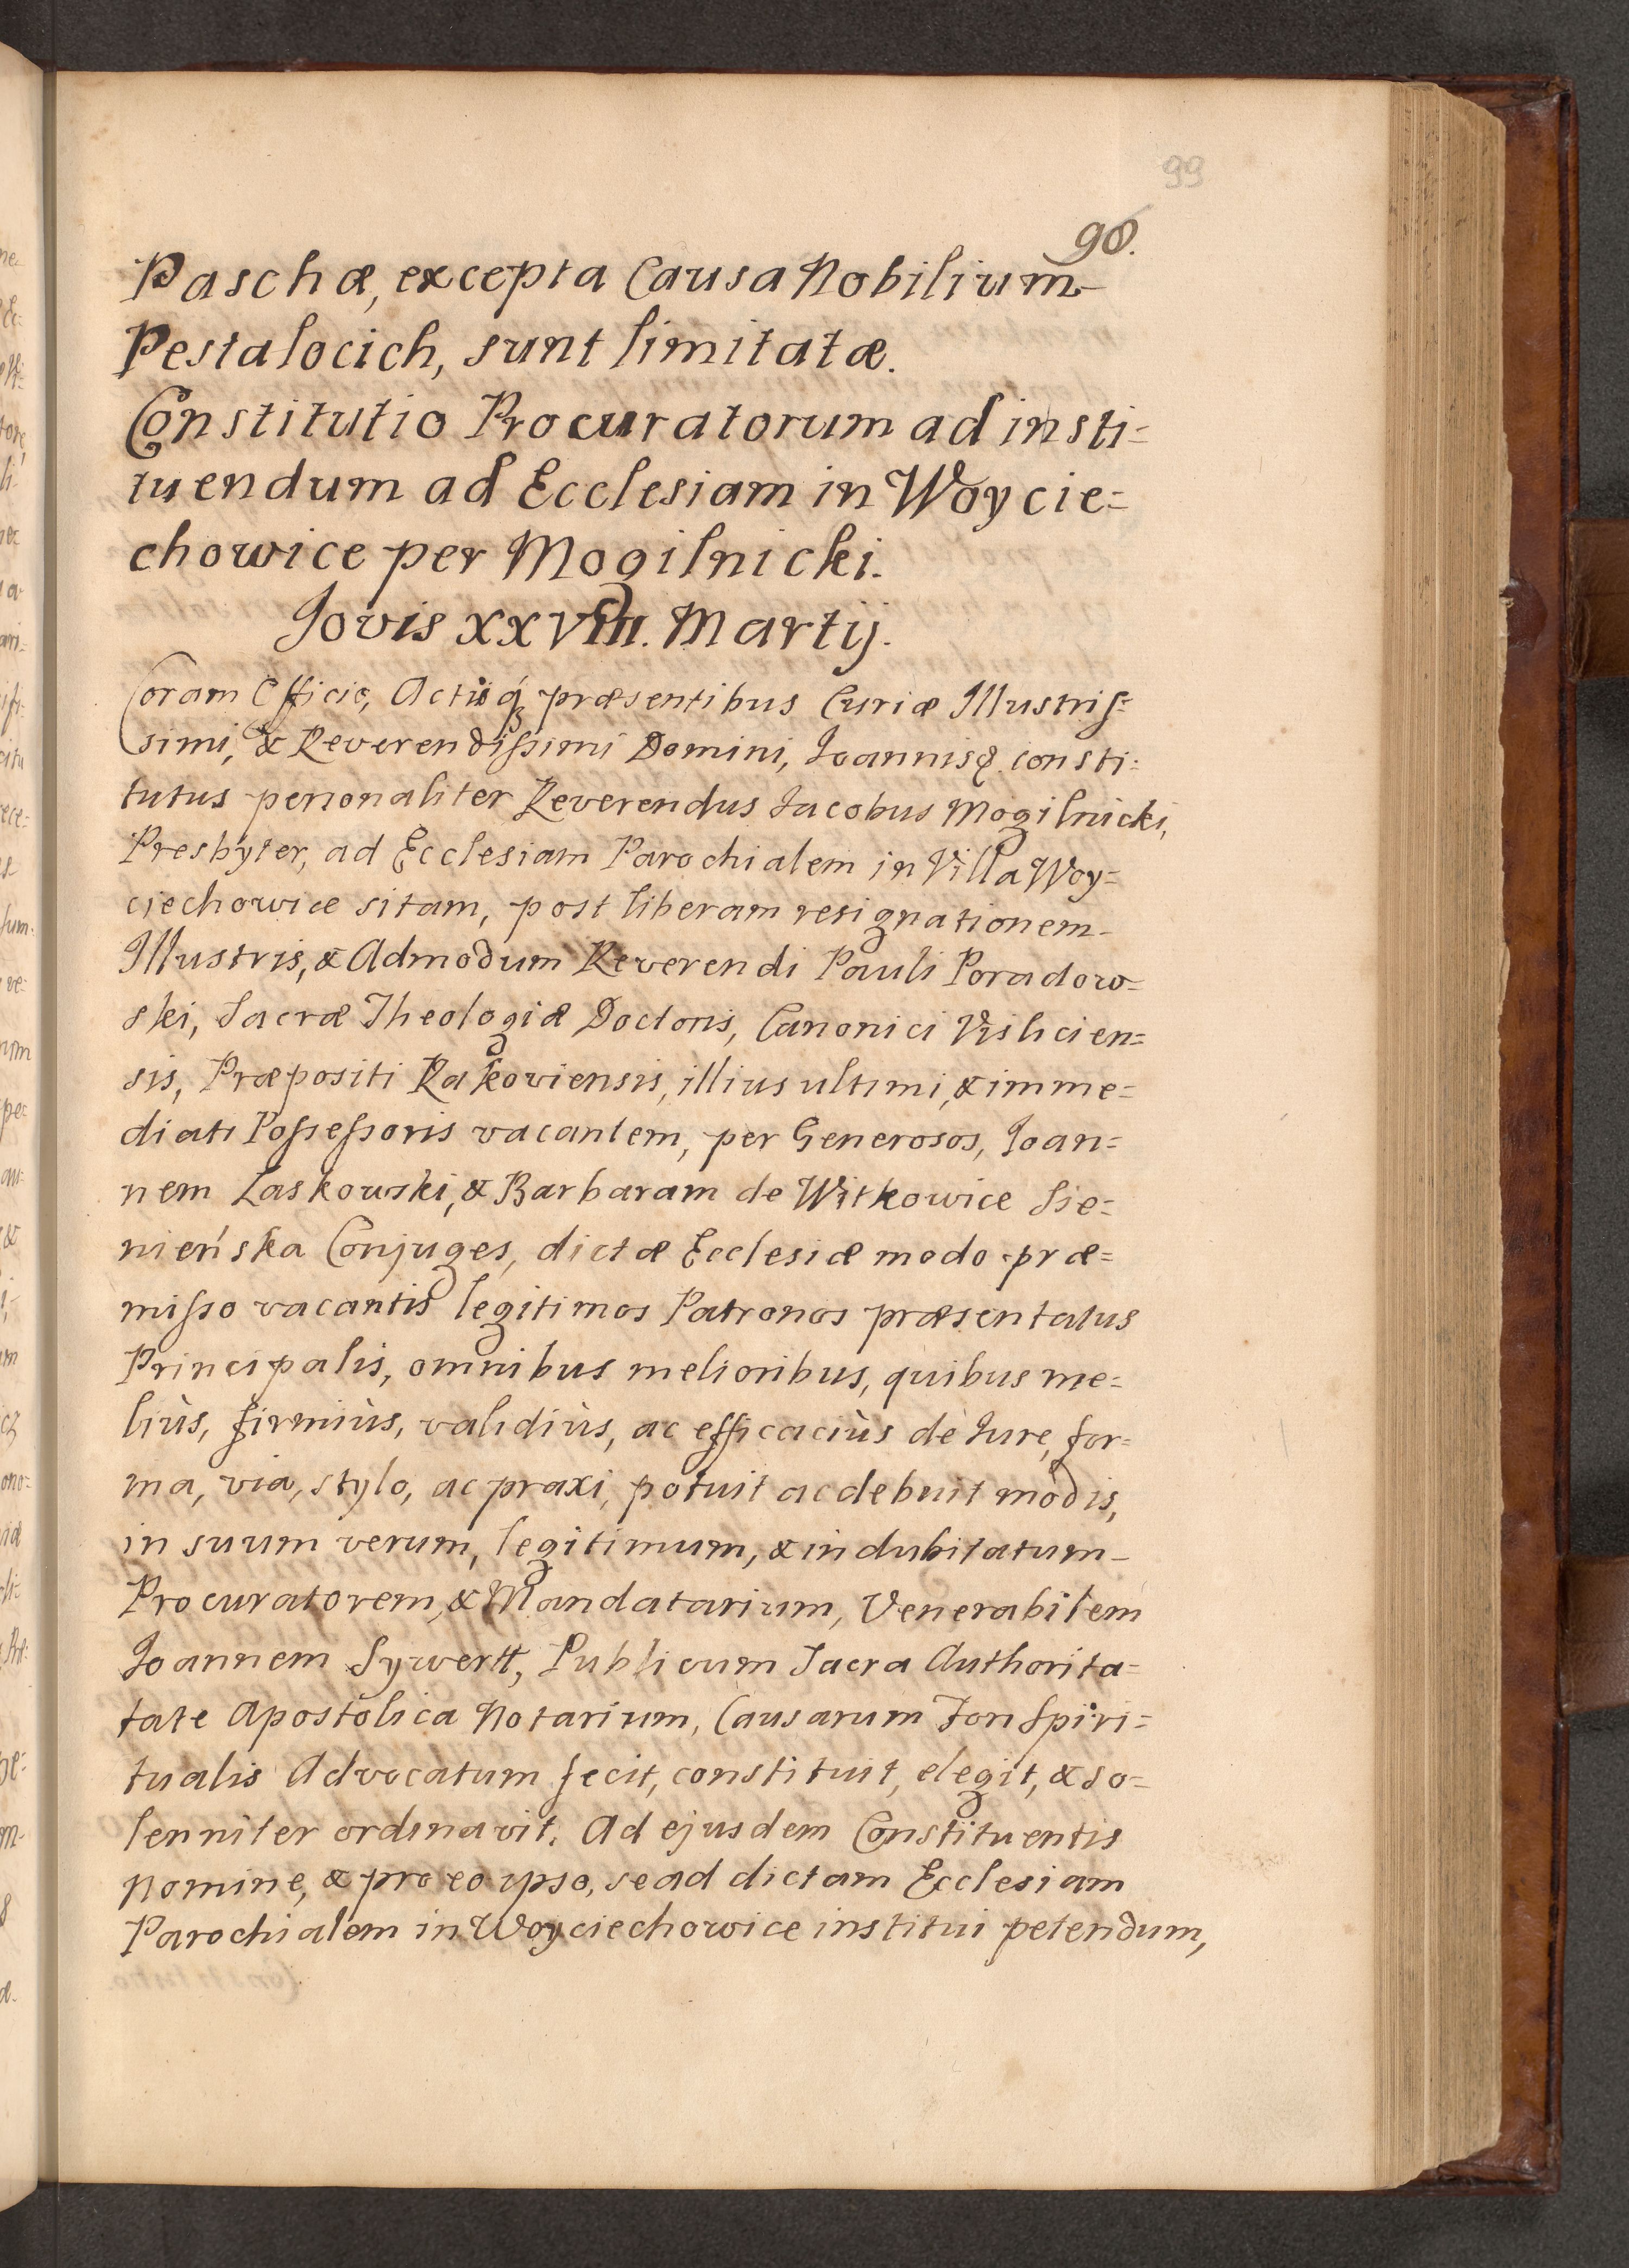 99
98.
Paschæ, excepta Causa Nobilium
Pestalocich, sunt limitatæ.
Constitutio Procuratorum ad insti=
tuendum ad Ecclesiam in Woycie=
chowice per Mogilnicki.
Jovis XXVIII. Martij.
Coram Officio, Actisq́ præsentibus Curiæ Illustriſ=
simi, & Reverendiſsimi Domini, Joannis &. consti=
tutus personaliter Reverendus Jacobus Mogilnicki,
Presbyter, ad Ecclesiam Parochialem in Villa Woy=
ciechowice sitam, post liberam resignationem
Illustris, & Admodum Reverendi Pauli Poradow=
ski, Sacræ Theologiæ Doctoris, Canonici Vislicien=
sis, Præpositi Rakoviensis, illius ultimi, & imme=
diati Poſseſsoris vacantem, per Generosos, Joan=
nem Laskowski, & Barbaram de Witkowice Sie=
nieńska Conjuges, dictæ Ecclesiæ modo præ=
miſso vacantis legitimos Patronos præsentatus
Principalis, omnibus melioribus, quibus me=
liùs, firmiùs, validiùs, ac efficaciùs de Jure, for=
ma, via, stylo, ac praxi, potuit ac debuit modis,
in suum verum, legitimum, & indubitatum
Procuratorem, & Mandatarium, Venerabilem
Joannem Sywertt, Publicum Sacra Authorita=
tate Apostolica Notarium, Causarum Fori Spiri=
tualis Advocatum fecit, constituit, elegit, & so=
lenniter ordinavit. Ad ejusdem Constituentis
nomine, & pro eo ipso, se ad dictam Ecclesiam
Parochialem in Woyciechowice institui petendum,